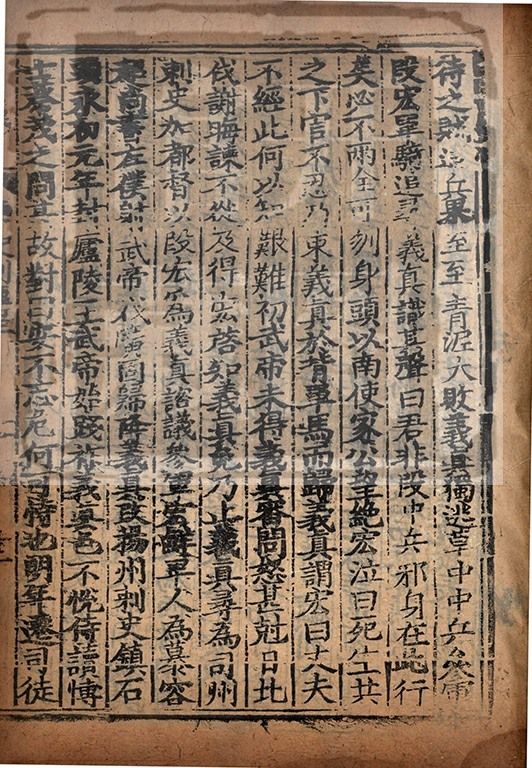 待之賊追兵果至至青泥大敗義真獨逃草中中兵參軍
段宏單騎追尋義真識其聲曰君非段中兵邪身在此行
矣必不兩全可刎身頭以南使家公望絶宏泣曰死生共
之下官不忍乃束義真於背單馬而歸義真謂宏曰丈夫
不經此何以知艱難初武帝未得義真審問怒甚剋日北
伐謝晦諫不從及得宏啓知義真免乃止義真尋為司州
刺史加都督以段宏為義真諮議參軍宏鮮卑人為慕容
超尚書左僕射武帝伐廣固歸降義真改揚州刺史鎮石
頭永初元年封廬陵王武帝始踐祚義真色不悅侍讀博
士蔡茂之問其故對曰安不忘危何可恃也明年遷司徒